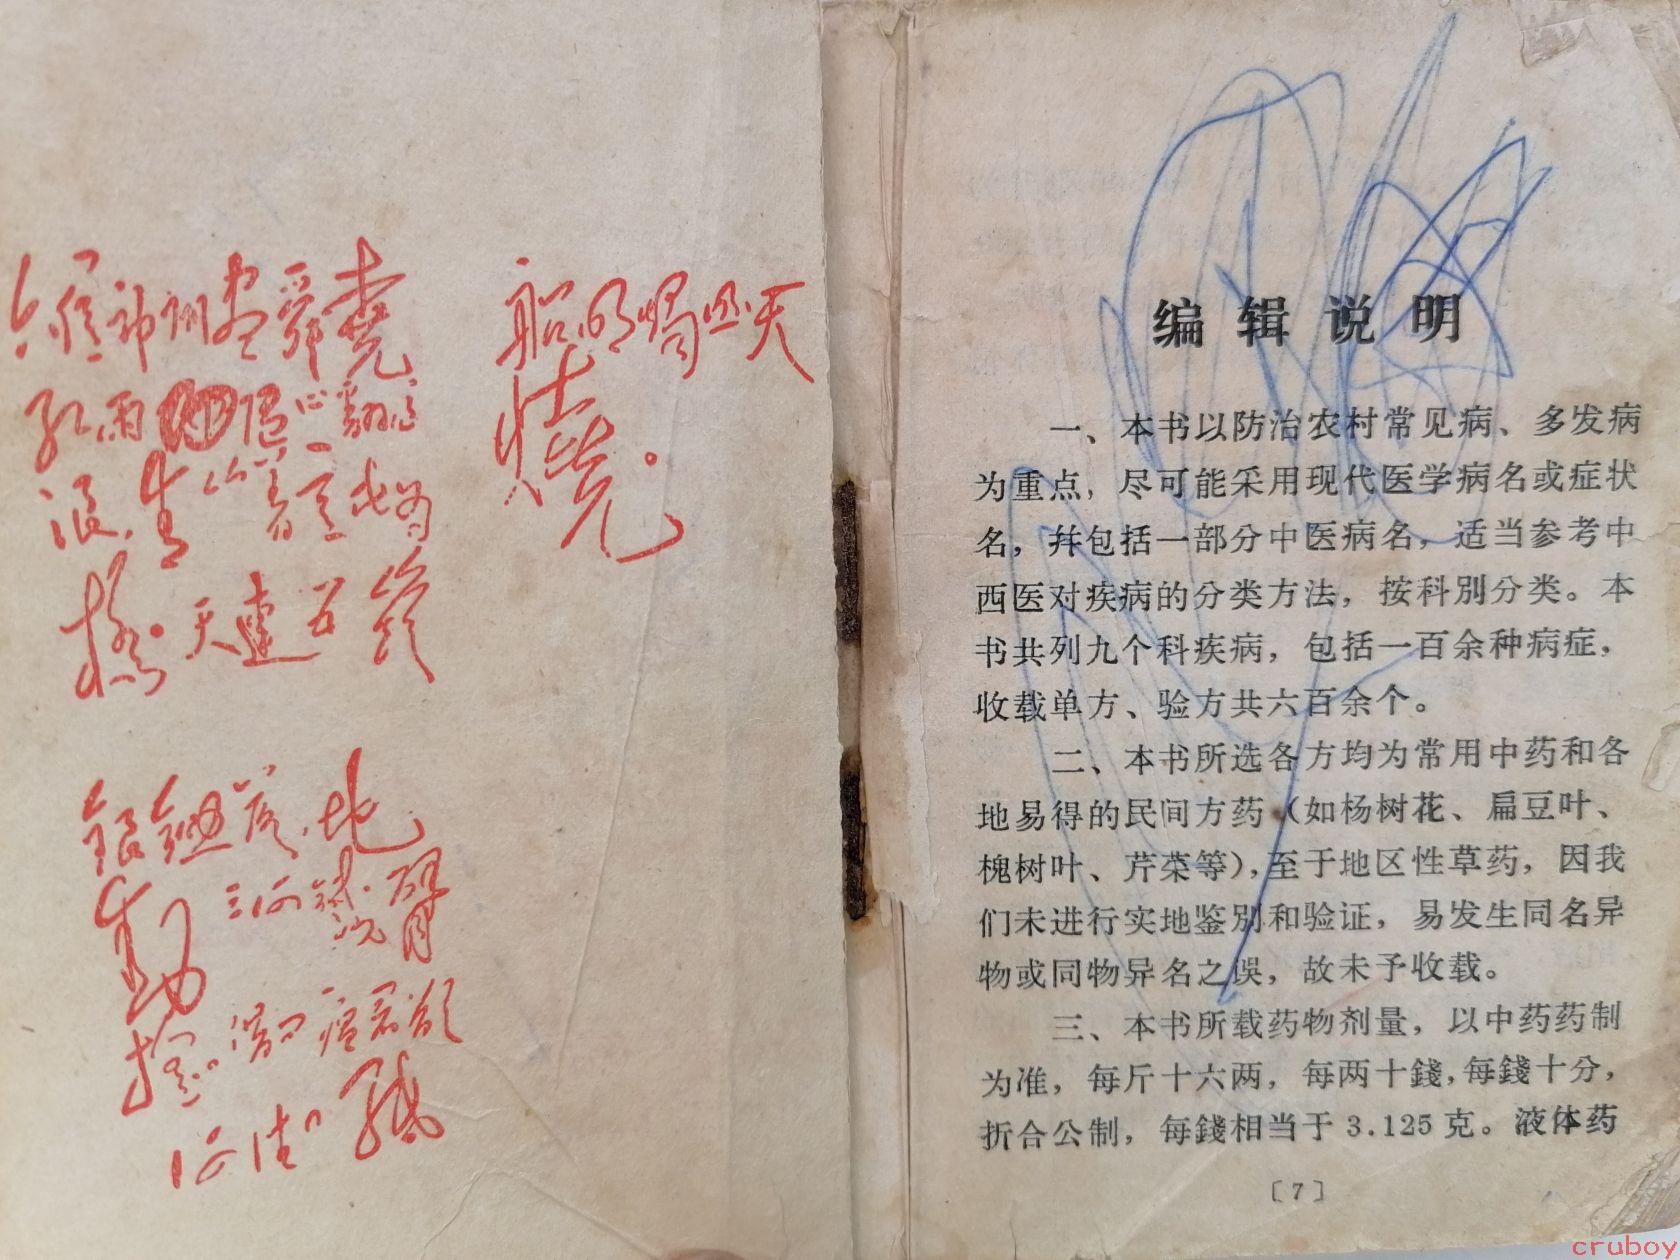 六億神州尽舜堯
红雨随心翻作
浪，青山着意化为
桥。天連五嶺
銀鋤落，地
動三河鐵臂
搖。借问瘟君欲
何往纸
船明燭照天
燒。
编辑说明
一、本书以防治农村常见病、多发病
为重点，尽可能采用现代医学病名或症状
名，幷包括一部分中医病名，适当参考中
西医对疾病的分类方法，按科别分类。本
书共列九个科疾病，包括一百余种病症，
收载单方、验方共六百余个。
二、本书所选各方均为常用中药和各
地易得的民间方药（如杨树花、扁豆叶、
槐树叶、芹菜等），至于地区性草药，因我
们未进行实地鉴别和验证，易发生同名异
物或同物异名之误，故未予收载。
三、本书所载药物剂量，以中药药制
为准，每斤十六两，每两十錢，每錢十分，
折合公制，每錢相当于3.125克。液体药
〔7〕
cruboy